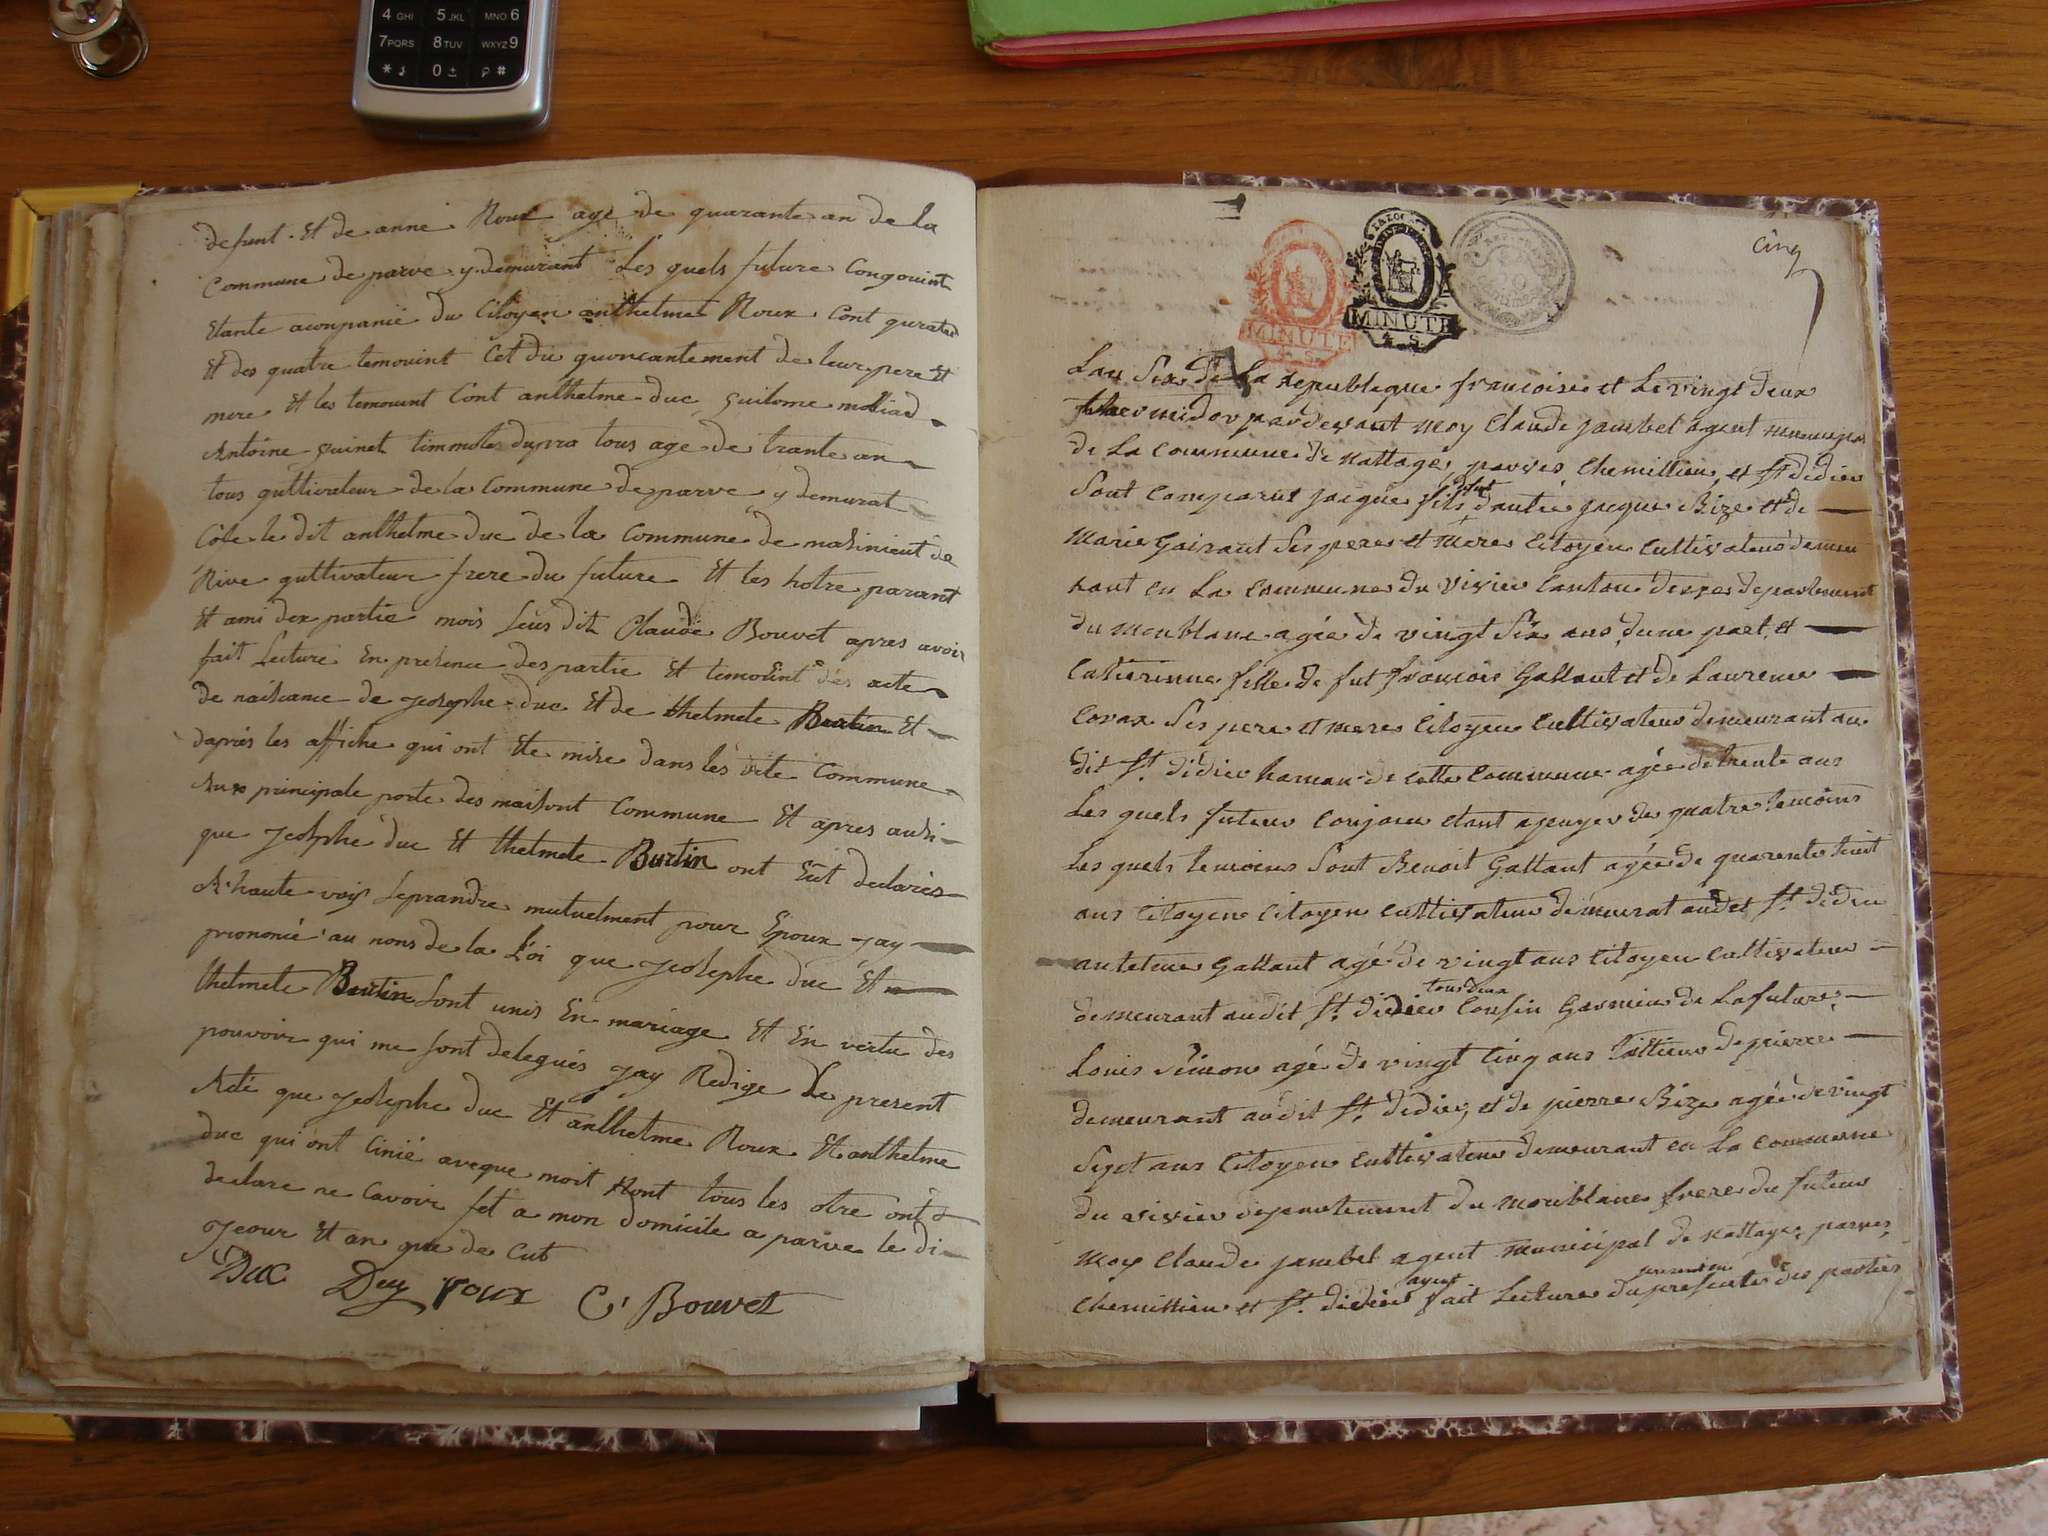 4 GHI 5 JKL MNO 6
7 PQRS 8 TUV WXYZ 9
* 0 ± #
defunt Et de anne Roux age de quarante an de la
Commune de parve y demurant Les quels future Congouint
Etante aconpanié du Citoyen anthelme Roux Cont
Et des quatre temouint Cet du de leur pere Et
mere Et les temouint Cont anthelme duc guilome molliad
Antoine guinet dupra tous age de trante an
tous qulltivateur de la Commune de parve y demurat
le dit anthelme duc de la Commune de de
Rive qulltivateur frere du future Et les hotre parant
Et ami dex partie mois dit Claude Bouvet apres avoir
fait Lecture En presence des partie Et temouint des acte
de naisance de Josephe duc Et de thelmete Burtin Et
dapres les affiche qui ont Ete mise dans les dite Commune
Aux principale porte des maisont Commune Et apres ausi
que Joseph duc Et thelmete Burtin ont Eut declares
A haute voix se prandre mutuelment pour Epoux Jay
prononié au nons de la Loi que Joseph duc Et
thelmete Burtin sont unis En mariage Et En vertu des
pouvoir qui me sont delegués Jay Redige Le present
Acte que Joseph duc Et anthelme Roux Et anthelme
duc qui ont Cinié aveque moit tous les otre ont
declare ne Cavoir fet a mon domicile a parve le di
Jour Et an que de Cut
Duc Duc roux C. Bouvet
cinq
MINUTE
4. S.
MINUTE
4. S.
Lan Six de La republique francoise et Le vingt deux
thermidor pardevant moy Claude jambet agent municipal
de La Commune de nattage, parves, Chemillieu, et St. didier
Sont Comparus jacque fils defut dautre jacque Bize et de
Marie Gairaut Ses pere et Mere Citoyen Cultivateur demeu
rant en La Commune du vivier Canton departement
du monblanc agée de vingt Six ans dune part, et
Catherinne fille de fut francois Gallant et de Laurence
Corax Ses pere et mere Citoyen Cultivateur demeurant au
dit St. didier hamau de cette Commune agée de trente ans
Les quels futeur Conjoin etant apuyer de quatre temoins
Les quels temoins Sont Benoit Gallant agée de quarente huit
ans Citoyen Citoyen Cultivateur demeurat audit St. didier
anteleme Gallant agé de vingt ans Citoyen Cultivateur
demeurant audit St. didier tous deux Cousin Germien de La future,
Louis Simon agé de vingt Cinq ans tailleur de pierre
demeurant audit St. didier, et de pierre Bize agée de vingt
Sept ans Citoyen Cultivateur demeurant en La Commune
du vivier departement du monblanc frere du futeur
Moy Claude jambet agent municipal de nattage, parves,
Chemillieu et St. didier ayent fait Lecture des parties